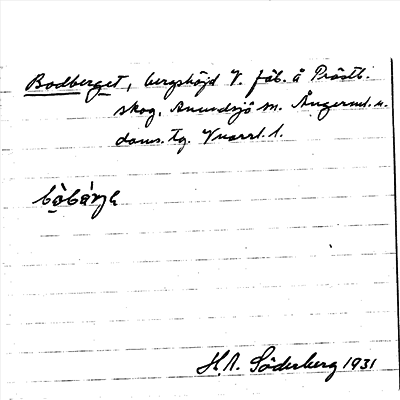 Bodberget, bergshöjd V. fäb. å Prästb.
skog, Anundsjö sn. Ångerml. n.
doms. tg. Kvarrl. 1.
H.A. Söderberg 1931